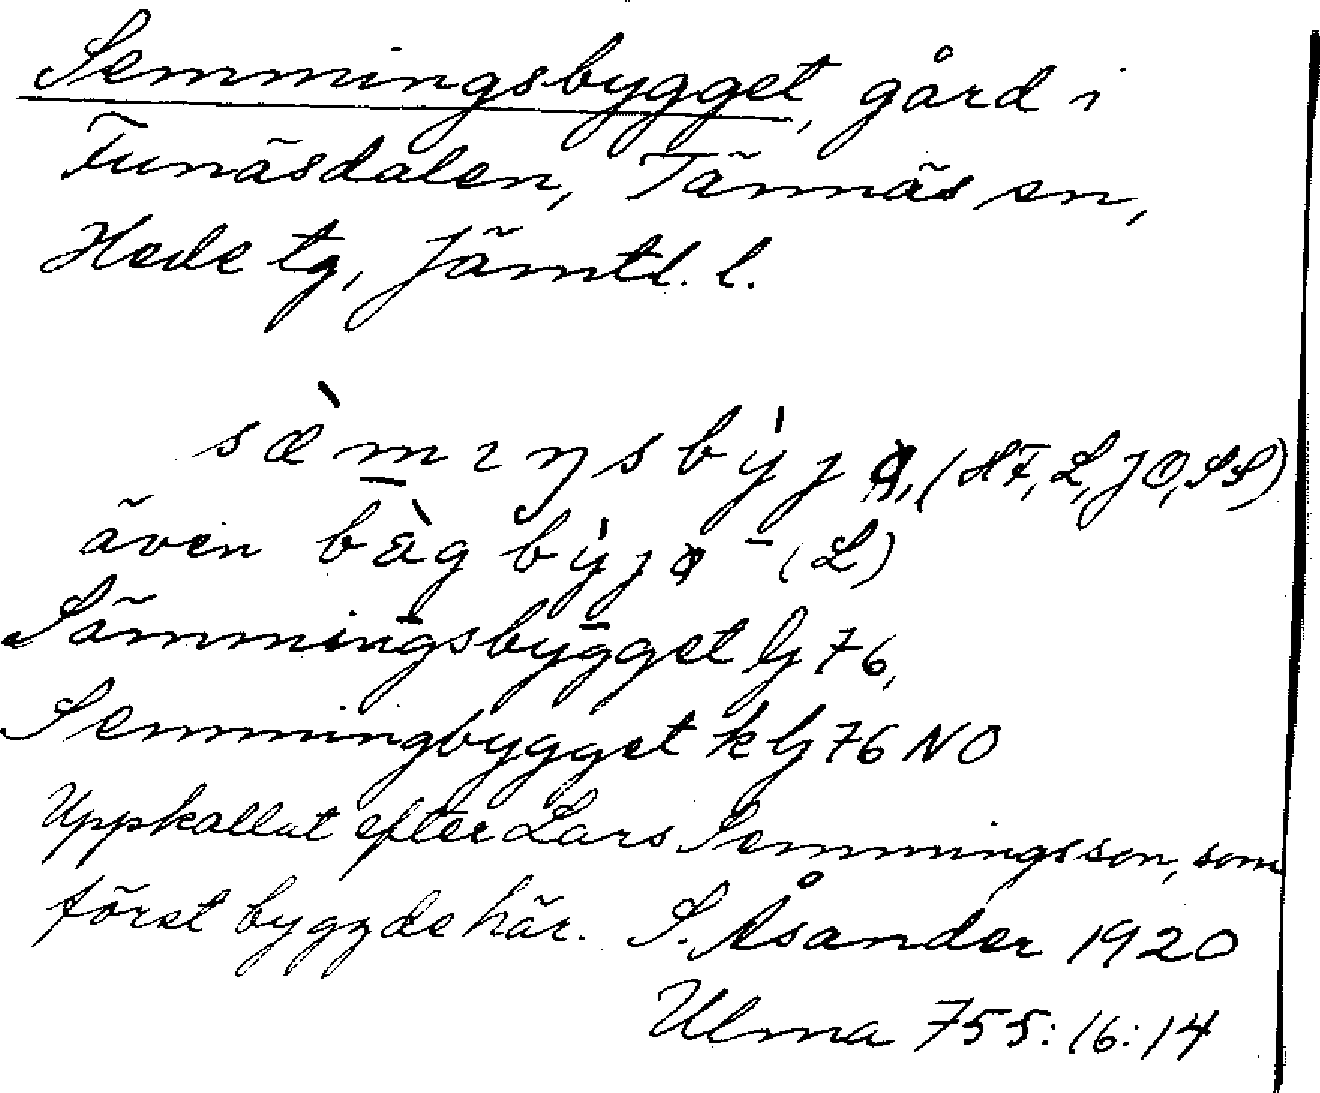 Semmingsbygget, gård i
Funäsdalen, Tännäs sn,
Hede tg, Jämtl. l.
sæ̀mıŋsby̍jə, (HF, L, JO, SS)
även bàgby̍jə - (L)
Sämmingsbygget Gj 76,
Semmingbygget k Gj 76 NO
Uppkallat efter Lars Semmingsson, som
först byggde här. S. Åsander 1920
Ulma 755:16:14